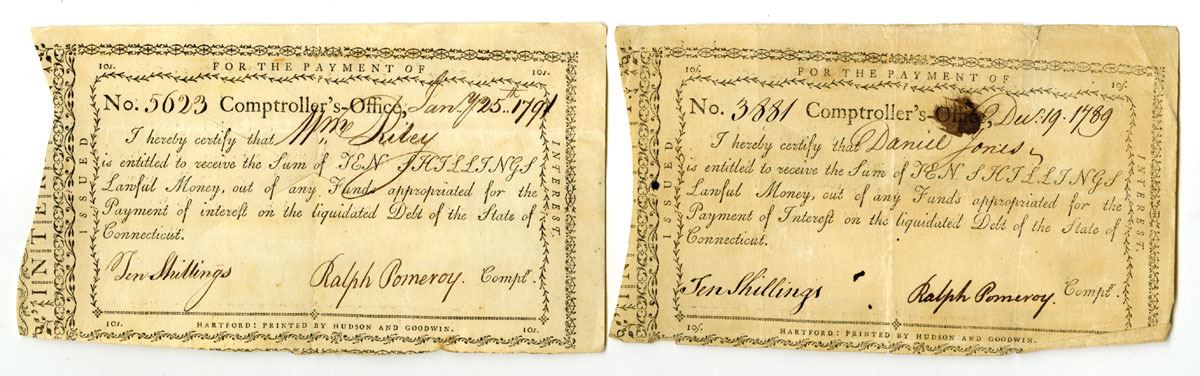 10s. FOR THE PAYMENT OF 10s.
No. 5623 Comptroller's-Office, Jany. 25th 1791
I hereby certify that Wm. Riley
is entitled to receive the Sum of TEN SHILLINGS
Lawful Money, out of any Funds appropriated for the
Payment of interest on the liquidated Debt of the State of
Connecticut.
Ten Shillings Ralph Pomeroy. Comptr.
10s. 10s.
HARTFORD: PRINTED BY HUDSON AND GOODWIN.
ISSUED
INTEREST.
IN INTER
FOR THE PAYMENT OF 10s.
No. 3881 Comptroller's-Office, Dec: 19. 1789
I hereby certify that Daniel Jones
is entitled to receive the Sum of TEN SHILLINGS
Lawful Money, out of any Funds appropriated for the
Payment of Interest on the liquidated Debt of the State of
Connecticut.
Ten Shillings Ralph Pomeroy. Comptr.
10s. 10s.
HARTFORD: PRINTED BY HUDSON AND GOODWIN.
ISSUED
INTEREST.